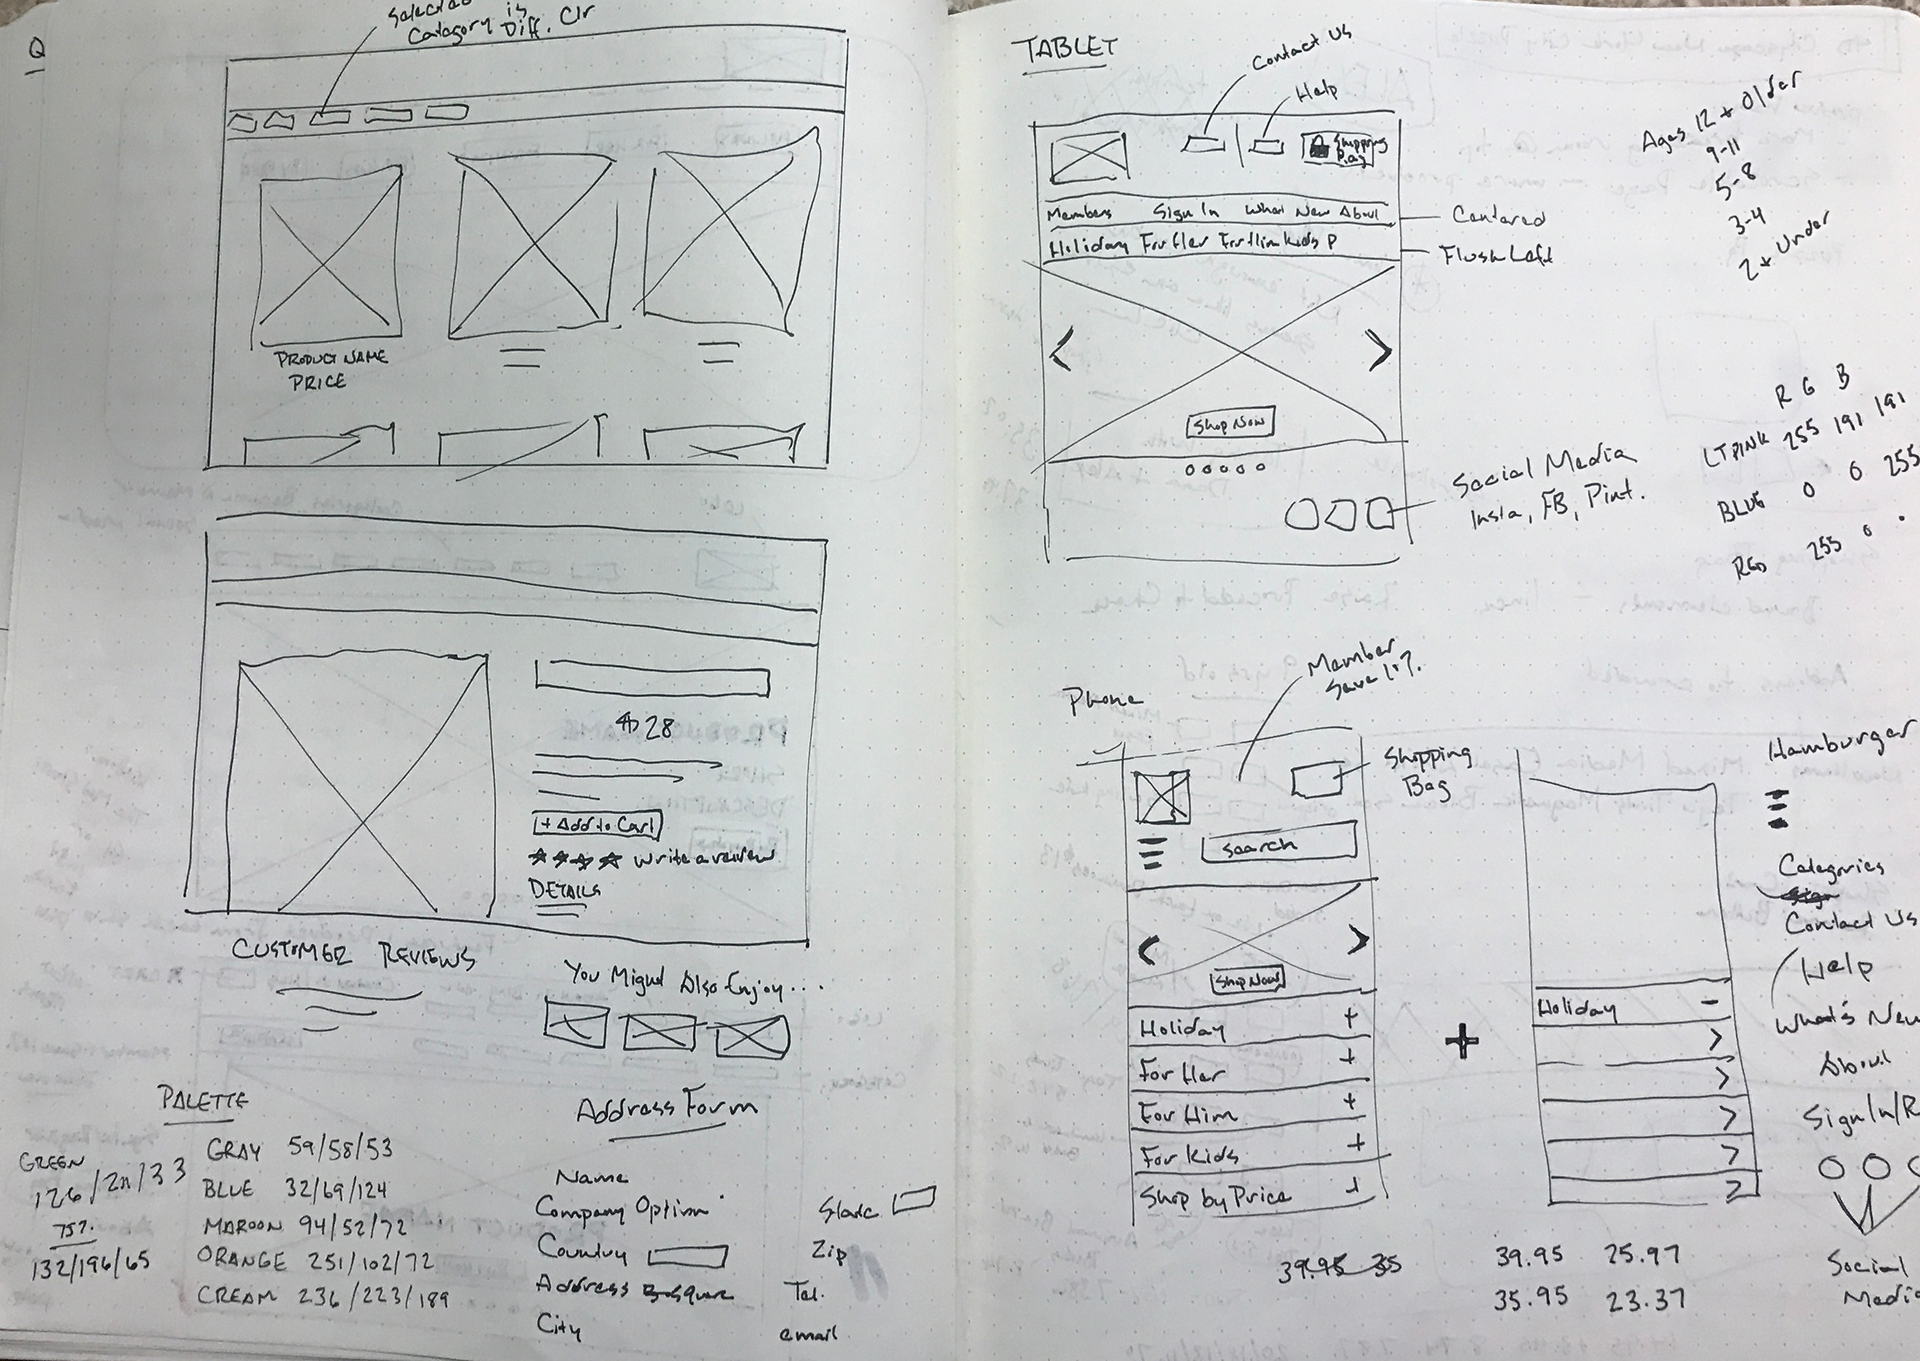 Q
Selected
Category is
Diff. Clr
PRODUCT NAME
PRICE
$28
+ Add to Cart
Write a review
DETAILS
CUSTOMER REVIEWS
You Might Also Enjoy...
PALETTE
GREEN
126/211/33
75%
132/196/65
GRAY 59/58/53
BLUE 32/69/124
MAROON 94/52/72
ORANGE 251/102/72
CREAM 236/223/189
Address Form
Name
Company Option
Country
Address
City
State
Zip
Tel.
email
TABLET
Contact Us
Help
Shopping
Bag
Members Sign In What New About
Centered
Holiday For Her For Him Kids P
Flush Left
Shop Now
Social Media
Insta, FB, Pint.
Ages 12 + Older
9-11
5-8
3-4
2 + Under
R G B
LT PINK 255 191 191
BLUE 0 0 255
RED 255 0
Phone
Member
Save
Shopping
Bag
Search
Shop Now
Holiday +
For Her +
For Him +
For Kids +
Shop by Price +
+
Holiday -
Hamburger
Categories
Sign
Contact Us
Help
What's New
About
Sign In/R
Social
Media
39.95 35
39.95 25.97
35.95 23.37